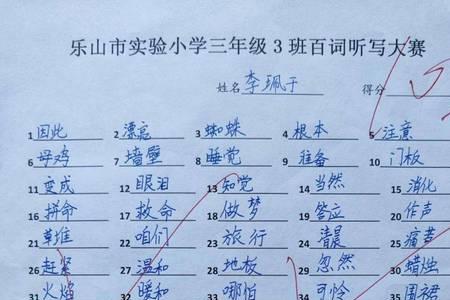 乐山市实验小学三年级3班百词听写大赛
姓名 李珮于 得分
1 因此 2 漂亮 3 蜘蛛 4 根本 5 注意
6 母鸡 7 墙壁 8 睡觉 9 准备 10 门板
11 变成 12 眼泪 13 知觉 14 当然 15 消化
16 拼命 17 救命 18 做梦 19 答应 20 作声
21 草堆 22 咱们 23 旅行 24 清晨 25
26 赶紧 27 温和 28 地板 29 忽然 30 蜡烛
31 火焰 32 暖和 33 哪怕 34 可怜 35 围裙